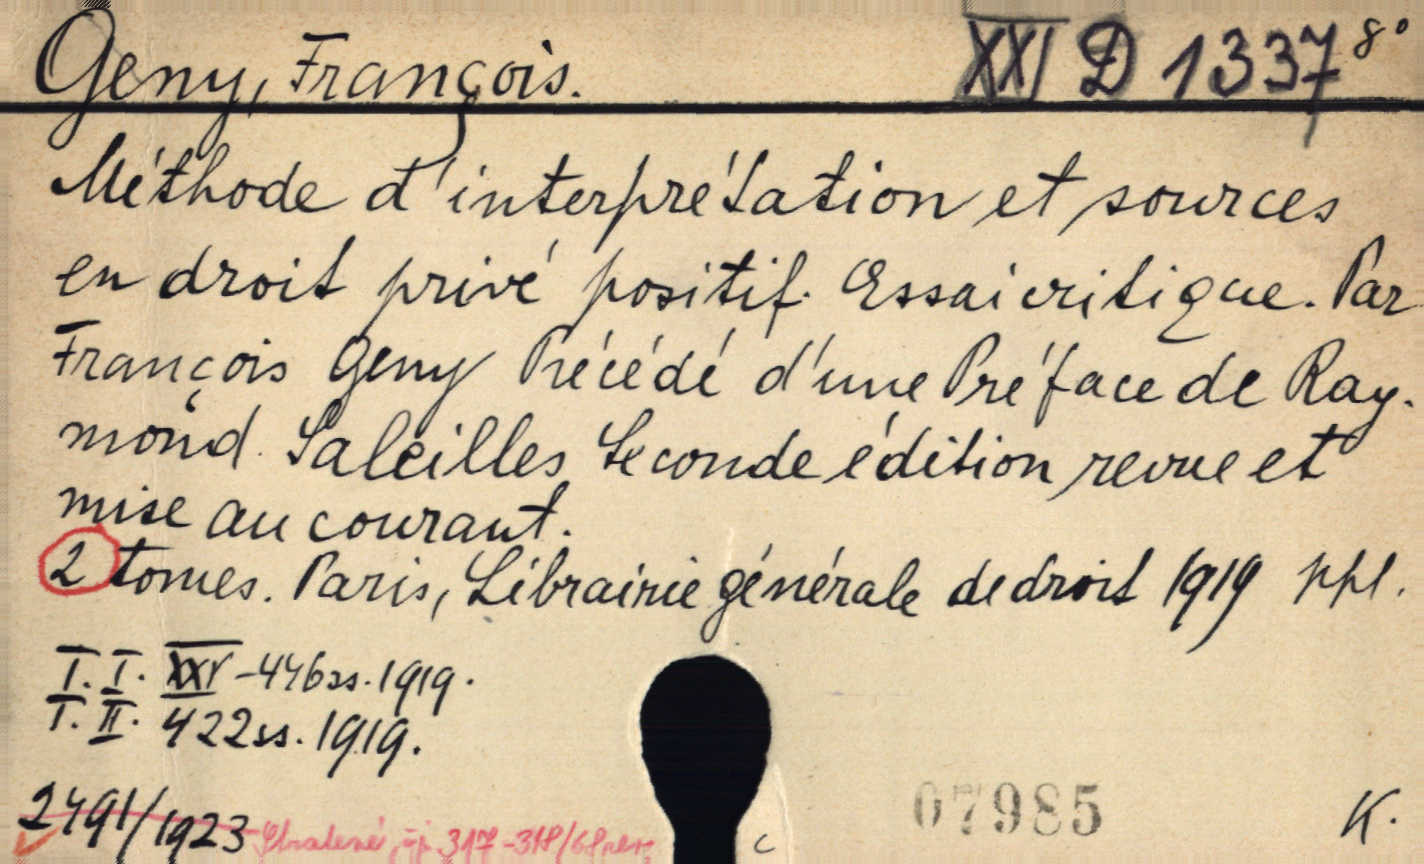 Geny, François. XXI D 1337 8°
Méthode d'interprétation et sources
en droit privé positif. Essai critique. Par
François Geny Précédé d'une Préface de Ray-
mond Saleilles Seconde édition revue et
mise au courant.
2 tomes. Paris, Librairie générale de droit 1919 ppl.
T. I. XXV-446 ss. 1919.
T. II. 422 ss. 1919.
2491/1923 317-318/68
c
07985
K.